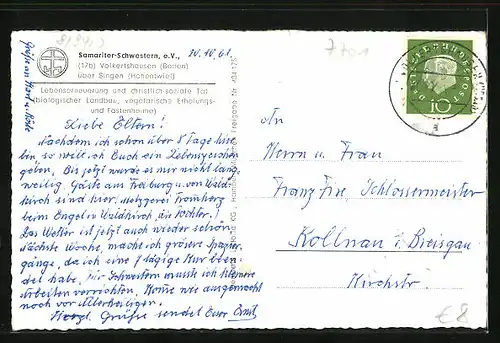 Samariter-Schwestern, e.V.,
(17b) Volkertshausen (Baden)
über Singen (Hohentwiel)
Lebenserneuerung und christlich-soziale Tat
(biologischer Landbau, vegetarische Erholungs-
und Fastenheime)
20.10.61.
Liebe Eltern!
Nachdem ich schon über 8 Tage hier
bin, so will ich Euch ein Lebenszeichen
geben. Bis jetzt wurde es mir nicht lang-
weilig. Gäste aus Freiburg u. von Wald-
kirch sind hier, Metzgerei Fromherz
beim Engel in Waldkirch die Tochter.
Das Wetter ist jetzt auch wieder schön,
nächste Woche, mache ich grössere Spazier-
gänge, da ich eine 7 tägige Kur
habe. Schwestern musste ich kleinere
Arbeiten verrichten. Komme wie ausgemacht
noch vor Allerheiligen.
Herzl. Grüße sendet Euer
Grüße an
An
Herrn u. Frau
Franz Schlossermeister
Kollnau i. Breisgau
Kirchstr.
DEUTSCHE BUNDESPOST
10
7701
€8